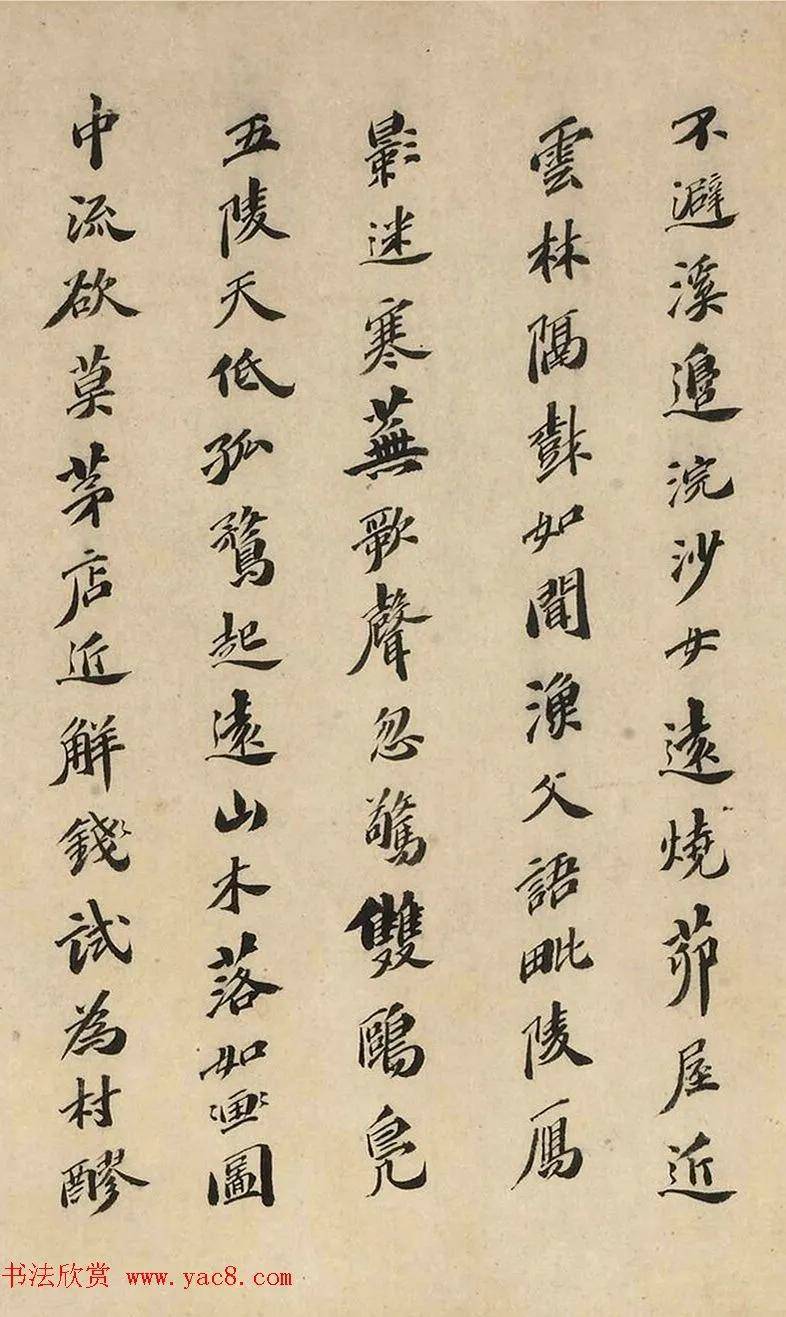 不避溪邊浣沙女遠燒茆屋近
雲林隔艇如聞漁父語毗陵鴈
影迷寒蕪歌聲忽驚雙鷗鳧
五陵天低孤鶩起遠山木落如畫圖
中流欲莫茅店近解錢試為村醪
书法欣赏 www.yac8.com